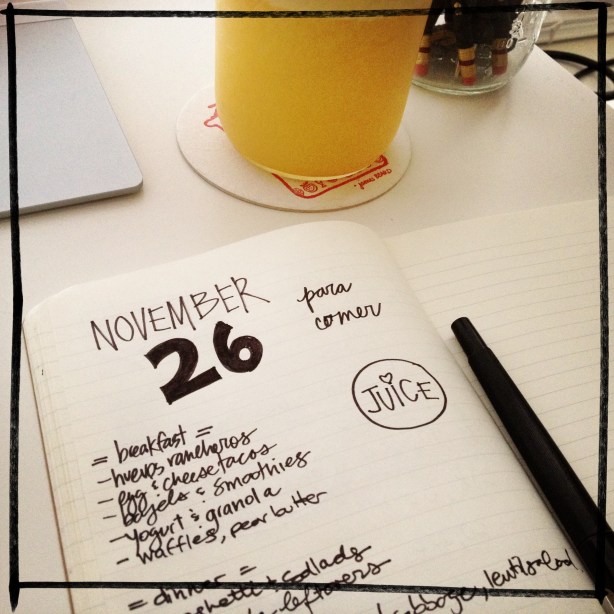 NOVEMBER
26
para
comer
JUICE
= breakfast =
- huevos rancheros
- egg & cheese tacos
- bagels & smoothies
- yogurt & granola
- waffles, pear butter
= dinner =
spaghetti + salads
leftovers
cabbage, lentil salad